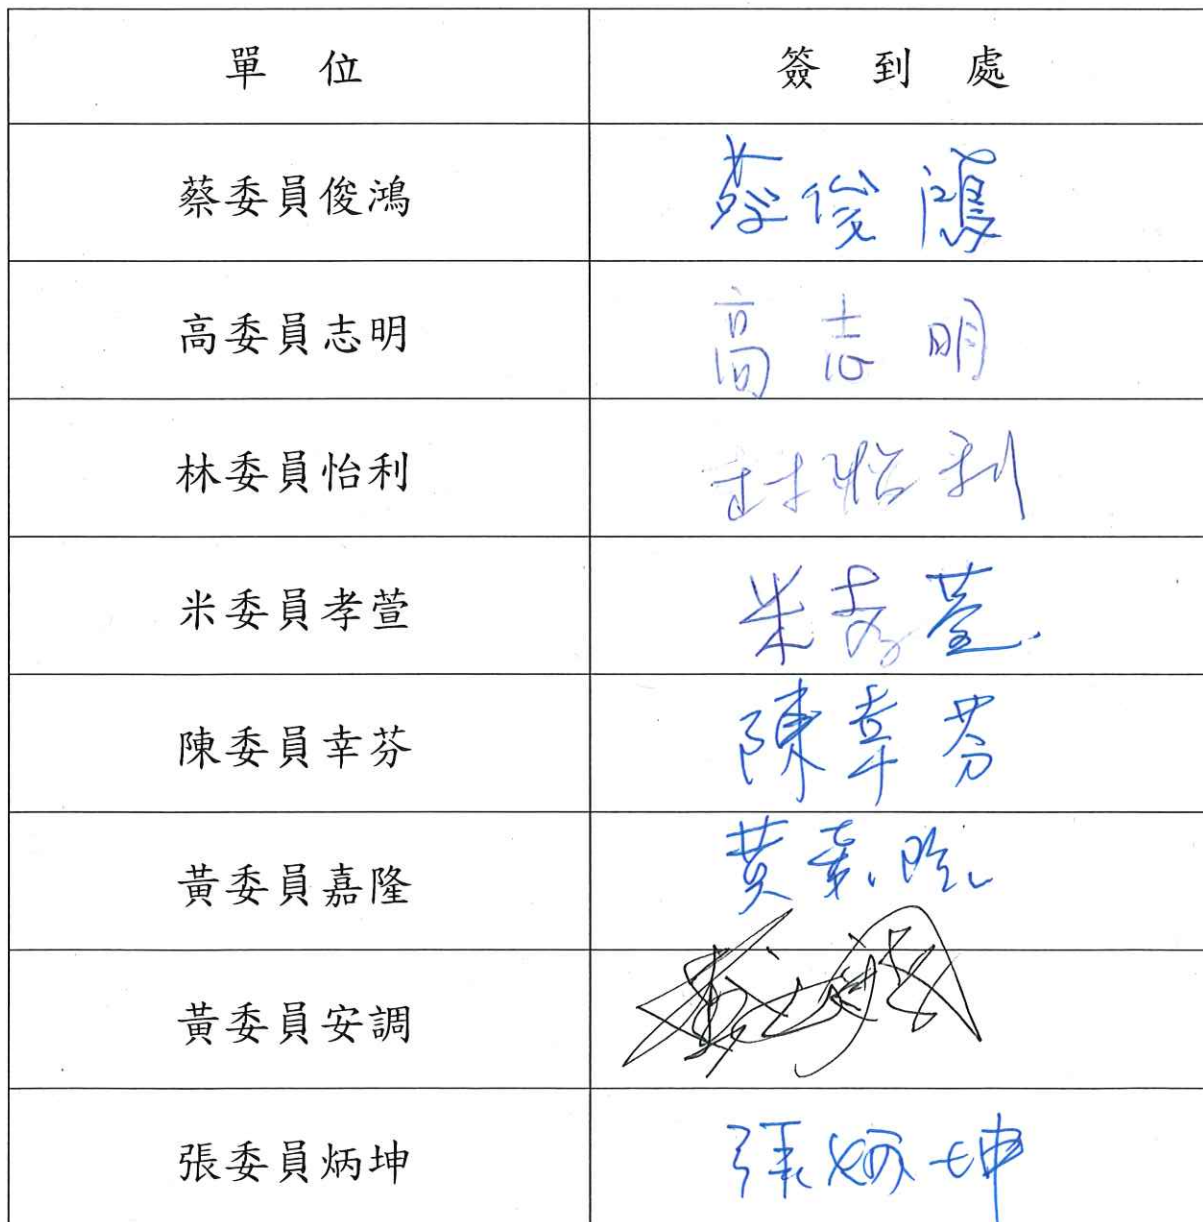 單 位 簽 到 處
蔡委員俊鴻 蔡俊鴻
高委員志明 高志明
林委員怡利 林怡利
米委員孝萱 米孝萱
陳委員幸芬 陳幸芬
黃委員嘉隆 黃嘉隆
黃委員安調
張委員炳坤 張炳坤